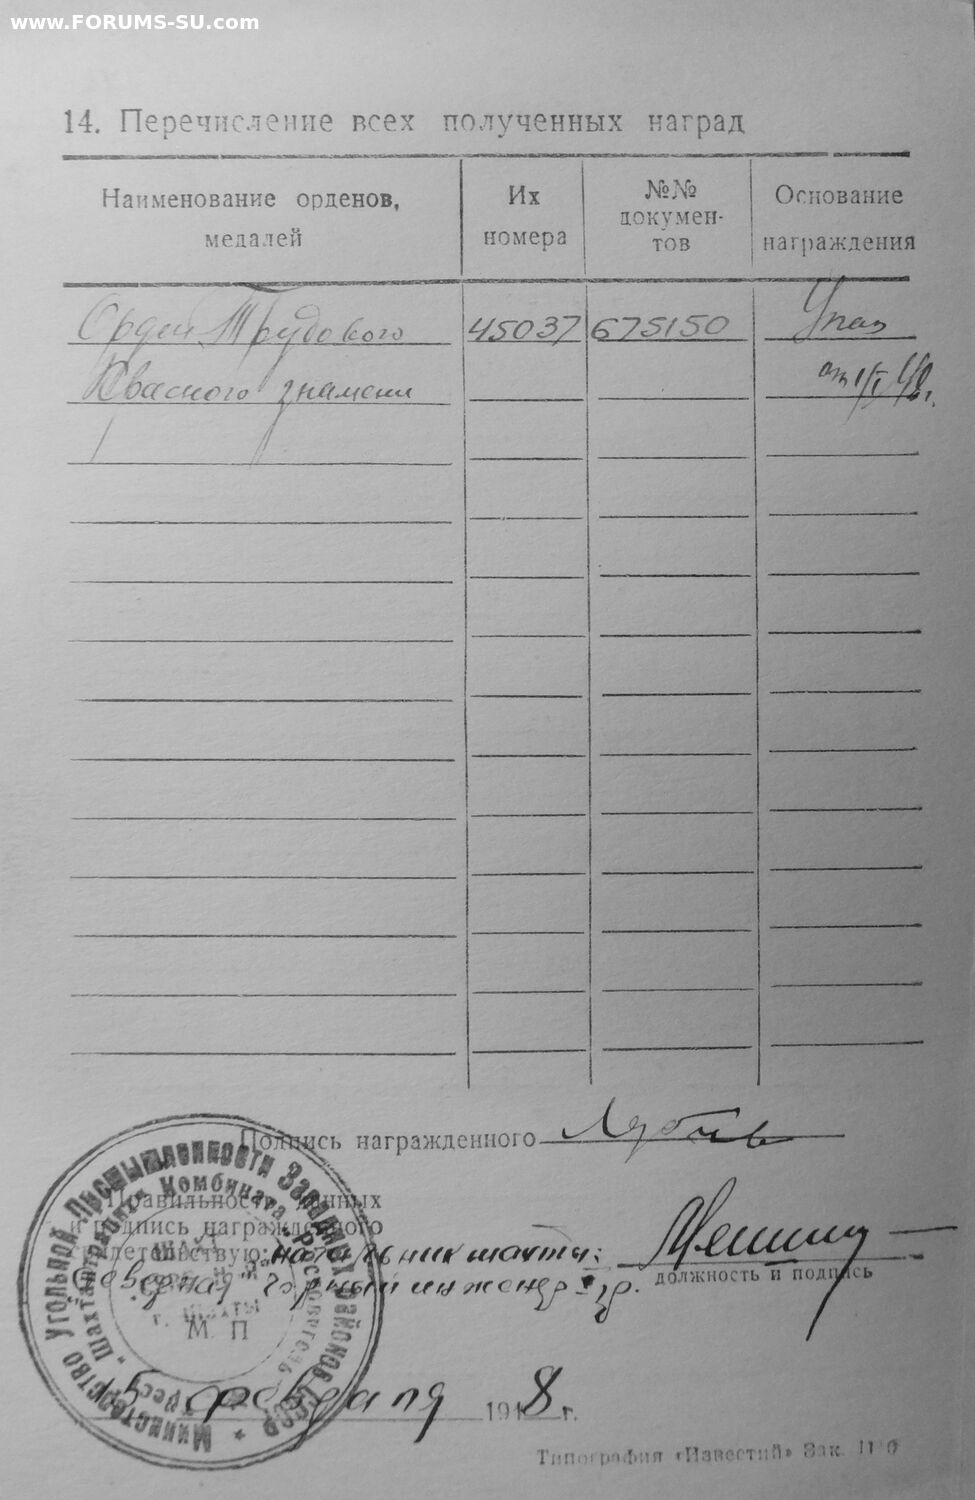 www.FORUMS-SU.com
14. Перечисление всех полученных наград
Наименование орденов, медалей
Их номера
№№ докумен-тов
Основание награждения
Орден Трудового 45037 675150 Указ
Красного знамени от 1/I 48г.
Подпись награжденного
Правильность данных
и подпись награжденного
свидетельствую: начальник шахты:
горный инженер I гр.
должность и подпись
г. Шахты
М. П
Министерство Угольной Промышленности Западных Районов СССР
Трест „Шахтантрацит" Комбината „Ростовуголь"
15 февраля 1948 г.
Типография «Известий» Зак.